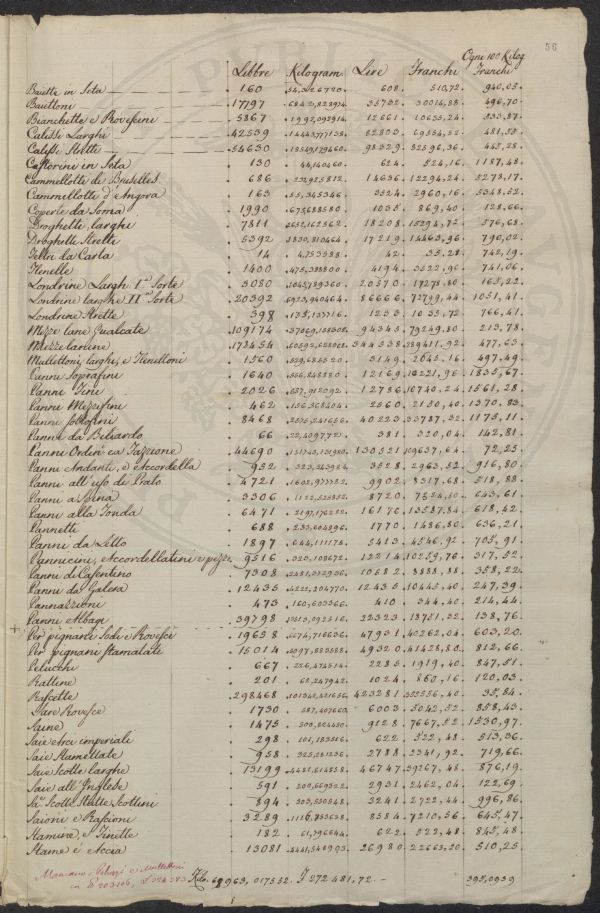 56
Ogni 100 Kilog
Libbre Kilogram Lire Franchi Franchi
Baiette in Seta 160 . 54,326720 . 608 . 510,72 . 940,05
Baiettoni 17797 35732 . 30014,88 . 496,70
Bianchette e Rovescini 5867 . 1992,092914 . 12661 . 10635,24 . 533,87
Calissi Larghi 42539 82803 . 69554,52 . 481,55
Calissi Stretti 54630 . 18549,179460 . 98329 . 82596,36 . 445,28
Castorini in Seta 130 . 44,140460 . 624 . 524,16 . 1187,48
Cammellotti di Bruselles 686 . 232,925812 . 14636 . 12294,24 . 5278,17
Cammellotti d'Angora 163 . 55,345346 . 3524 . 2960,16 . 5348,52
Coperte da Soma 1990 . 675,688580 . 1035 . 869,40 . 128,66
Droghetti larghi 7811 . 2652,162562 . 18208 . 15294,72 . 576,68
Droghetti Stretti 5392 . 1830,810464 . 17219 . 14463,96 . 790,02
Feltri da Carta 14 . 4,753588 . 42 . 35,28 . 742,19
Flenelle 1400 . 475,358800 . 4194 . 3522,96 . 741,06
Londrine Larghi I.a Sorte 3080 . 1045,789360 . 20570 . 17278,80
Londrine larghe II.a Sorte 20392 . 6923,940464 . 86666 . 72799,44 . 1051,41
Londrine Strette 398 . 135,137716 . 1233 . 1035,72 . 766,41
Mezze lane Gualcate 109174 . 37069,158808 . 94345 . 79249,80 . 213,78
Mezzelanine 344538 . 289411,92 . 477,63
Mullettoni, larghi, e Flenettoni 1560 . 529,685520 . 3149 . 2645,16 . 497,49
Panni Soprafini 1640 . 556,848880 . 12169 . 10221,96 . 1835,67
Panni Fini 2026 . 687,912392 . 12786 . 10740,24 . 1561,28
Panni Mezzifini 462 . 156,868404 . 2560 . 2150,40 . 1370,83
Panni Sottofini 8468 . 2875,241656 . 40223 . 33787,32 . 1175,11
Panni da Biliardo 66 . 22,409772 . 381 . 320,04
Panni Ordinj ea Fazzione 44690 130521 . 109637,64 . 72,25
Panni Andanti, e Accordella 952 . 323,243984 . 3528 . 2963,52 . 916,80
Panni all'uso di Prato 4721 . 1602,977782 . 9902 . 8317,68 . 518,88
Panni a Spina 3306 . 1122,525852 . 8720 . 7324,80
Panni alla Tonda 6471 . 2197,176282 . 16176 . 13587,84 . 618,42
Pannetti 688 . 233,604896 . 1770 . 1486,80 . 636,21
Panni da Letto 1897 . 644,111174 . 5413 . 4546,92 . 705,91
Pannicini, Accordellatini e pezze 9516 12214 . 10259,76 . 317,52
Panni di Casentino 7308 . 2481,372936 . 10582 . 8888,88 . 358,22
Panni da Galera 12435 . 4222,204770 . 12435 . 10445,40 . 247,39
Pannazzioni 473 . 160,603366 . 410 . 344,40 . 214,44
Panni Albagi 39798 . 13513,092510 . 22323 . 18751,32 . 138,76
Per pignani Sodi e Rovesci 19658 . 6674,716636 . 47931 . 40262,04 . 603,20
Per pignani Stamalati 15014 . 5097,883588 . 49320 . 41428,80 . 812,66
Pelucchi 667 . 226,474514 . 2285 . 1919,40 . 847,51
Rattine 201 . 68,247942 . 1024 . 860,16
Rascette 298468 . 101342,421656 . 423281 . 355556,40
Sare Rovesce 1730 . 587,407660 . 6003 . 5042,52 . 858,43
Saine 1475 9128 . 7667,52 . 1530,97
Saie Arci imperiali 298 . 101,183516 . 622 . 522,48 . 513,36
Saie Stamettate 958 . 325,281236 . 2788 . 2341,92 . 719,66
Saie Scotte larghe 13199 . 4481,614858 . 46747 . 39267,48 . 876,19
Saie all'Inglese 591 . 200,669322 . 2931 . 2462,04
Sa.e Scotte Strette, Scottini 894 . 303,550548 . 3241 . 2722,44
Saioni e Rascioni 3289 . 1116,753638 . 8584 . 7210,56 . 645,47
Stamine, e Finette 182 . 61,796644 . 622 . 522,48 . 845,48
Stame e Accia 13081 . 4441,548902 . 26980 . 22663,20 . 510,25
Kilo. F 272481,72.— 395,0939